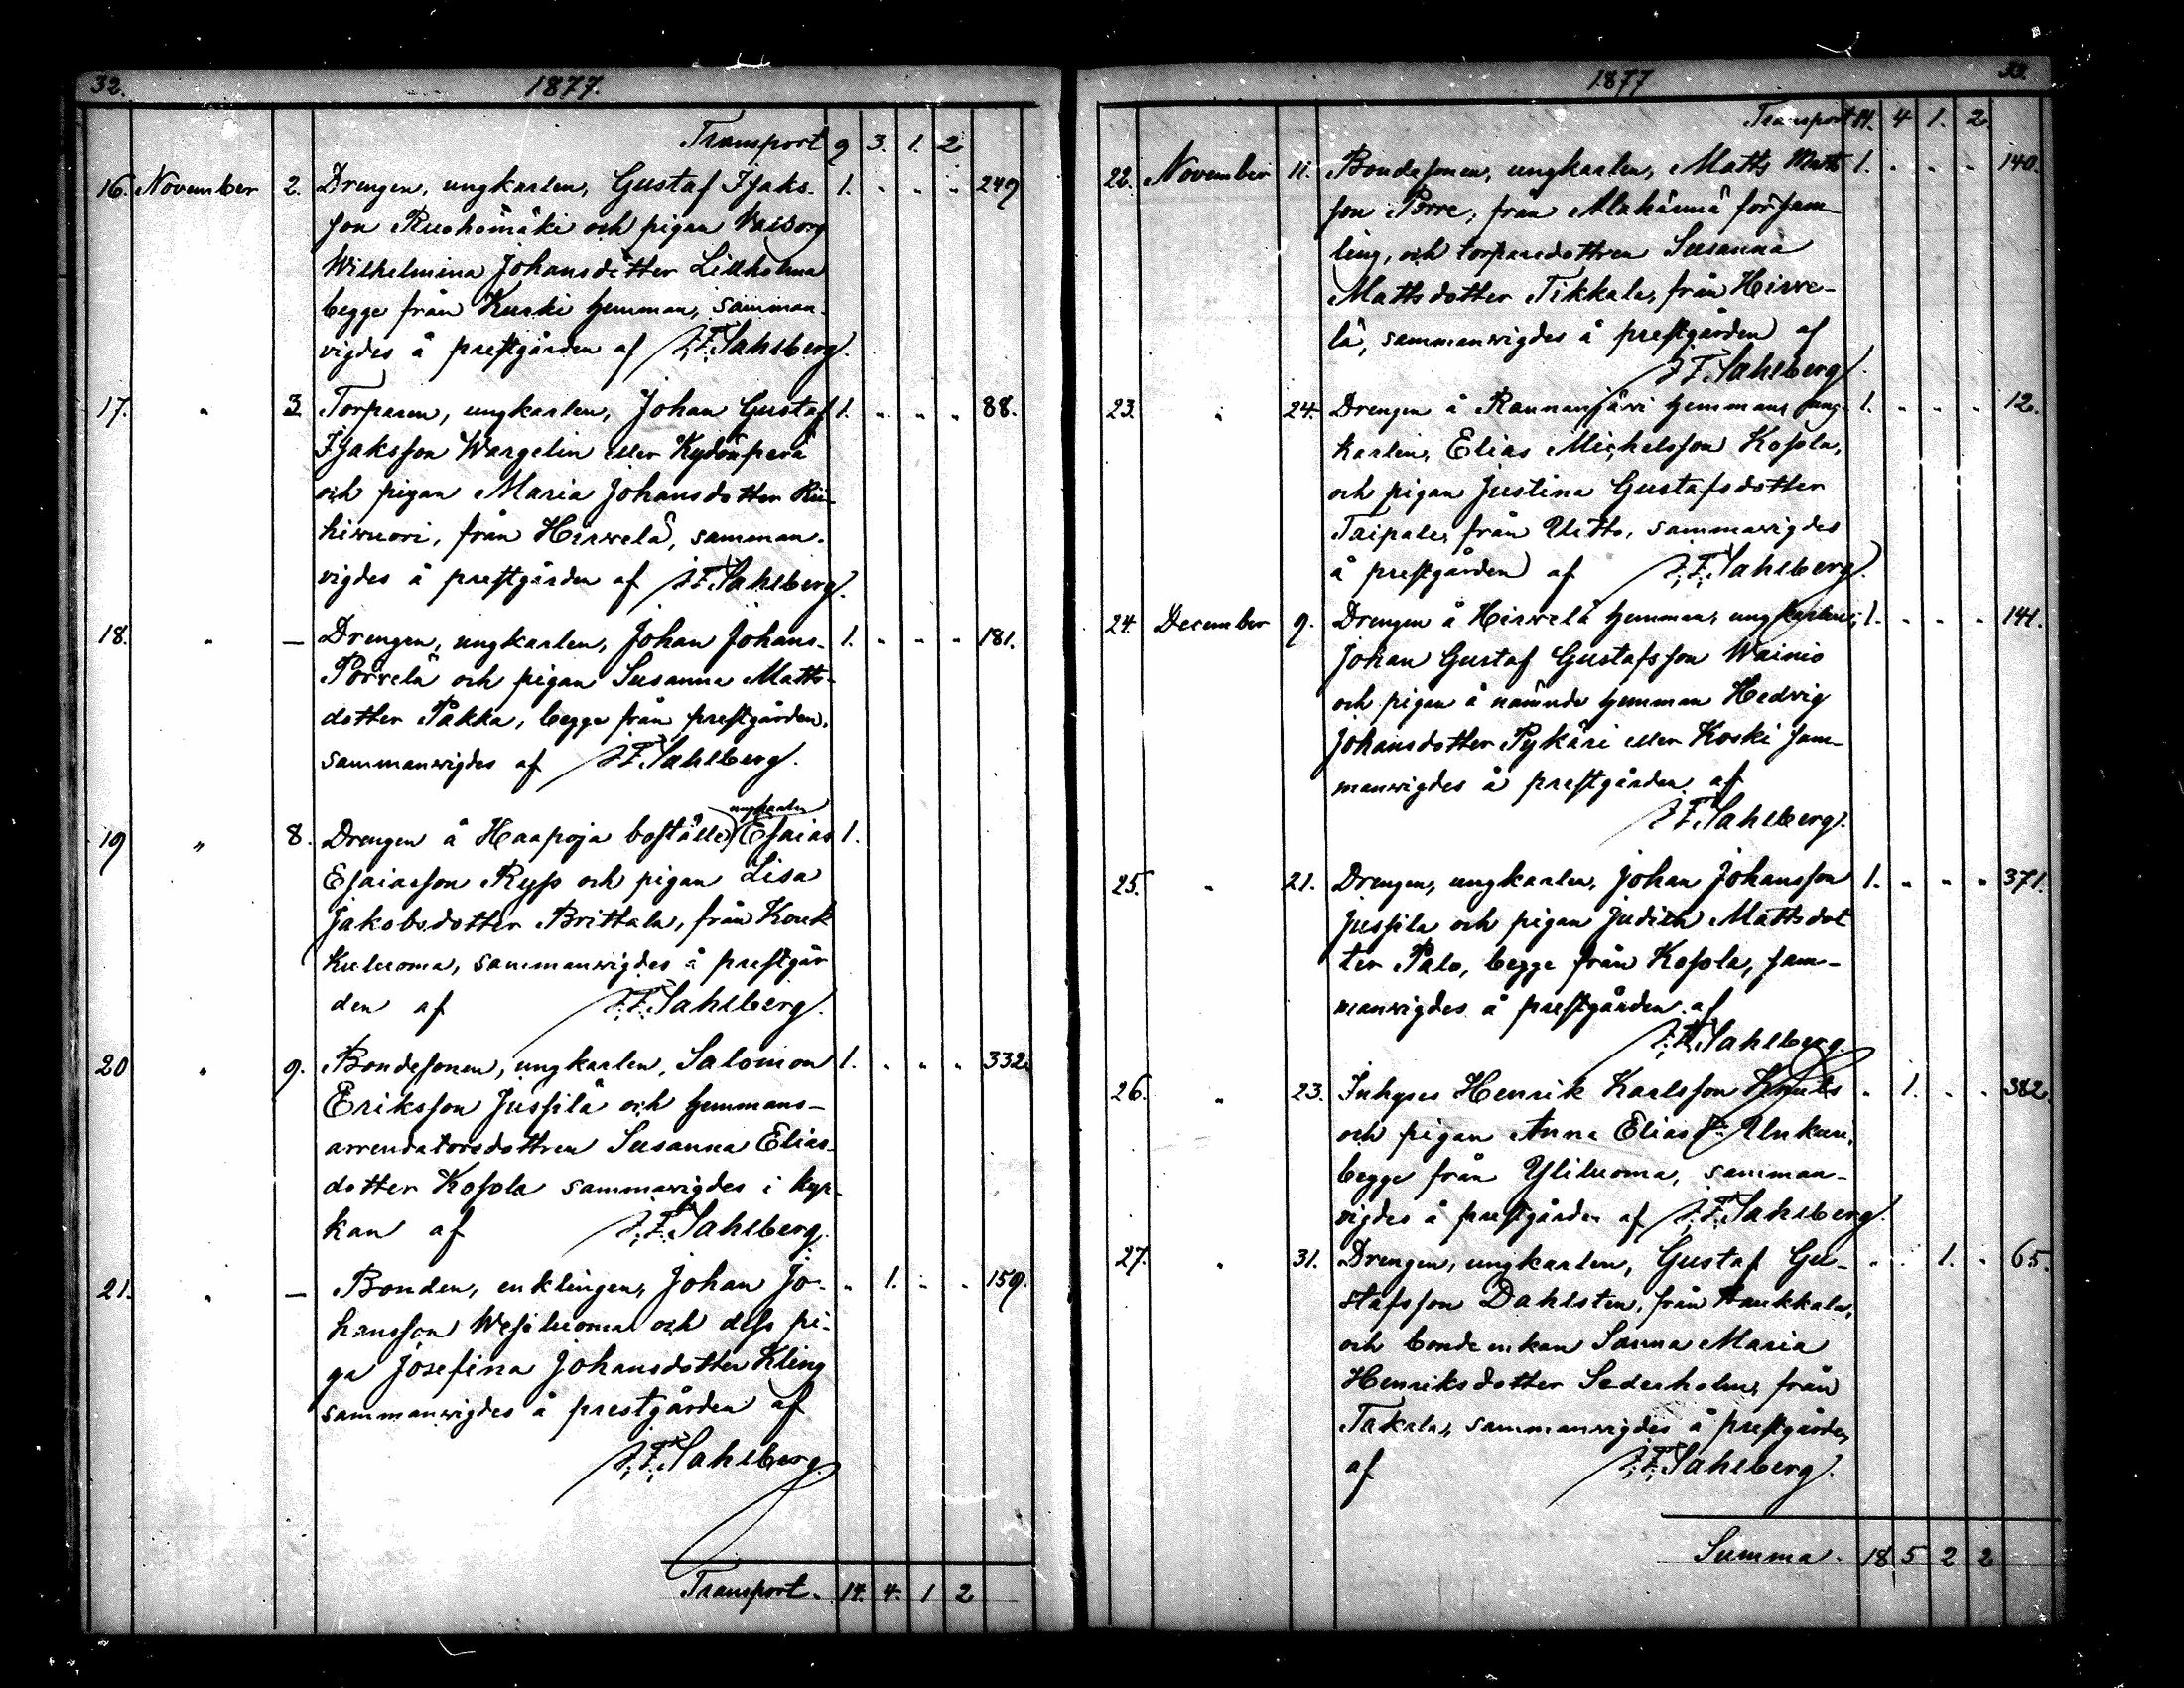 32. 1877.
Transport 9 3. 1. 2
16. November 2. Drengen, ungkarlen, Gustaf Isaks- 1. " " " 249
son Ruohomäki och pigan Walborg
Wilhelmina Johansdotter Lillholma
begge från Kurki hemman, samman-
vigdes å prestgården af J. F. Sahlberg.
17. " 3. Torparen, ungkarlen, Johan Gustaf 1. " " " 88.
Isaksson Wargelin eller Kydönperä
och pigan Maria Johansdotter Rii-
hivuori, från Hirvelä, samman-
vigdes å prestgården af J. F. Sahlberg.
18. " — Drengen, ungkarlen, Johan Johans- 1. " " " 181.
Porvelä och pigan Susanna Matts-
dotter Pakka, begge från prestgården,
sammanvigdes af J. F. Sahlberg.
ungkarlen
19 " 8. Drengen å Haapoja boställe, Esaias 1.
Esaiasson Ryss och pigan Lisa
Jakobsdotter Brittala, från Kouk
kuluoma, sammanvigdes å prestgår
den af J. F. Sahlberg.
20 " 9. Bondesonen, ungkarlen, Salomon 1. " " " 332.
Eriksson Jussila och hemmans-
arrendatorsdottren Susanna Elias-
dotter Kosola sammanvigdes i kyr-
kan af J. F. Sahlberg.
21. " — Bonden, enklingen, Johan Jo- " 1. " " 159.
hansson Wesiluoma och dess pi-
ga Josefina Johansdotter Kling
sammanvigdes å prestgården af
J. F. Sahlberg.
Transport. 14. 4. 1 2
1877 33.
Transport 14. 4 1. 2.
22. November 11. Bondesonen, ungkarlen, Matts Matts 1. " " " 140.
son Porre, från Alahärmä försam-
ling, och torparedottren Susanna
Mattsdotter Tikkala, från Hirve-
lä, sammanvigdes å prestgården af
J. F. Sahlberg.
23. " 24. Drengen å Rannanjärvi hemman, ung- 1. " " " 12.
karlen, Elias Michelsson Kosola,
och pigan Justina Gustafsdotter
Taipale, från Uitto, sammavigdes
å prestgården af J. F. Sahlberg.
24. December 9. Drengen å Hirvelä hemman, ungkarlen, 1. " " " 141.
Johan Gustaf Gustafsson Wainio
och pigan å nämnde hemman Hedvig
Johansdotter Pykäri eller Koski sam-
manvigdes å prestgården af
J. F. Sahlberg.
25. " 21. Drengen, ungkarlen, Johan Johansson 1. " " " 371.
Jussila och pigan Judith Mattsdot
ter Palo, begge från Kosola, sam-
manvigdes å prestgården af
J. F. Sahlberg.
26. " 23. Inhyses Henrik Karlsson " 1. " " 382.
och pigan Anna Elias Dr Unkuri,
begge från Yliluoma, samman-
vigdes å prestgården af J. F. Sahlberg.
27. " 31. Drengen, ungkarlen, Gustaf Gu- " " 1. " 65.
stafsson Dahlsten, från Haukkala,
och bondeenkan Sanna Maria
Henriksdotter Sederholm, från
Takala, sammanvigdes å prestgården
af J. F. Sahlberg.
Summa. 18 5 2 2